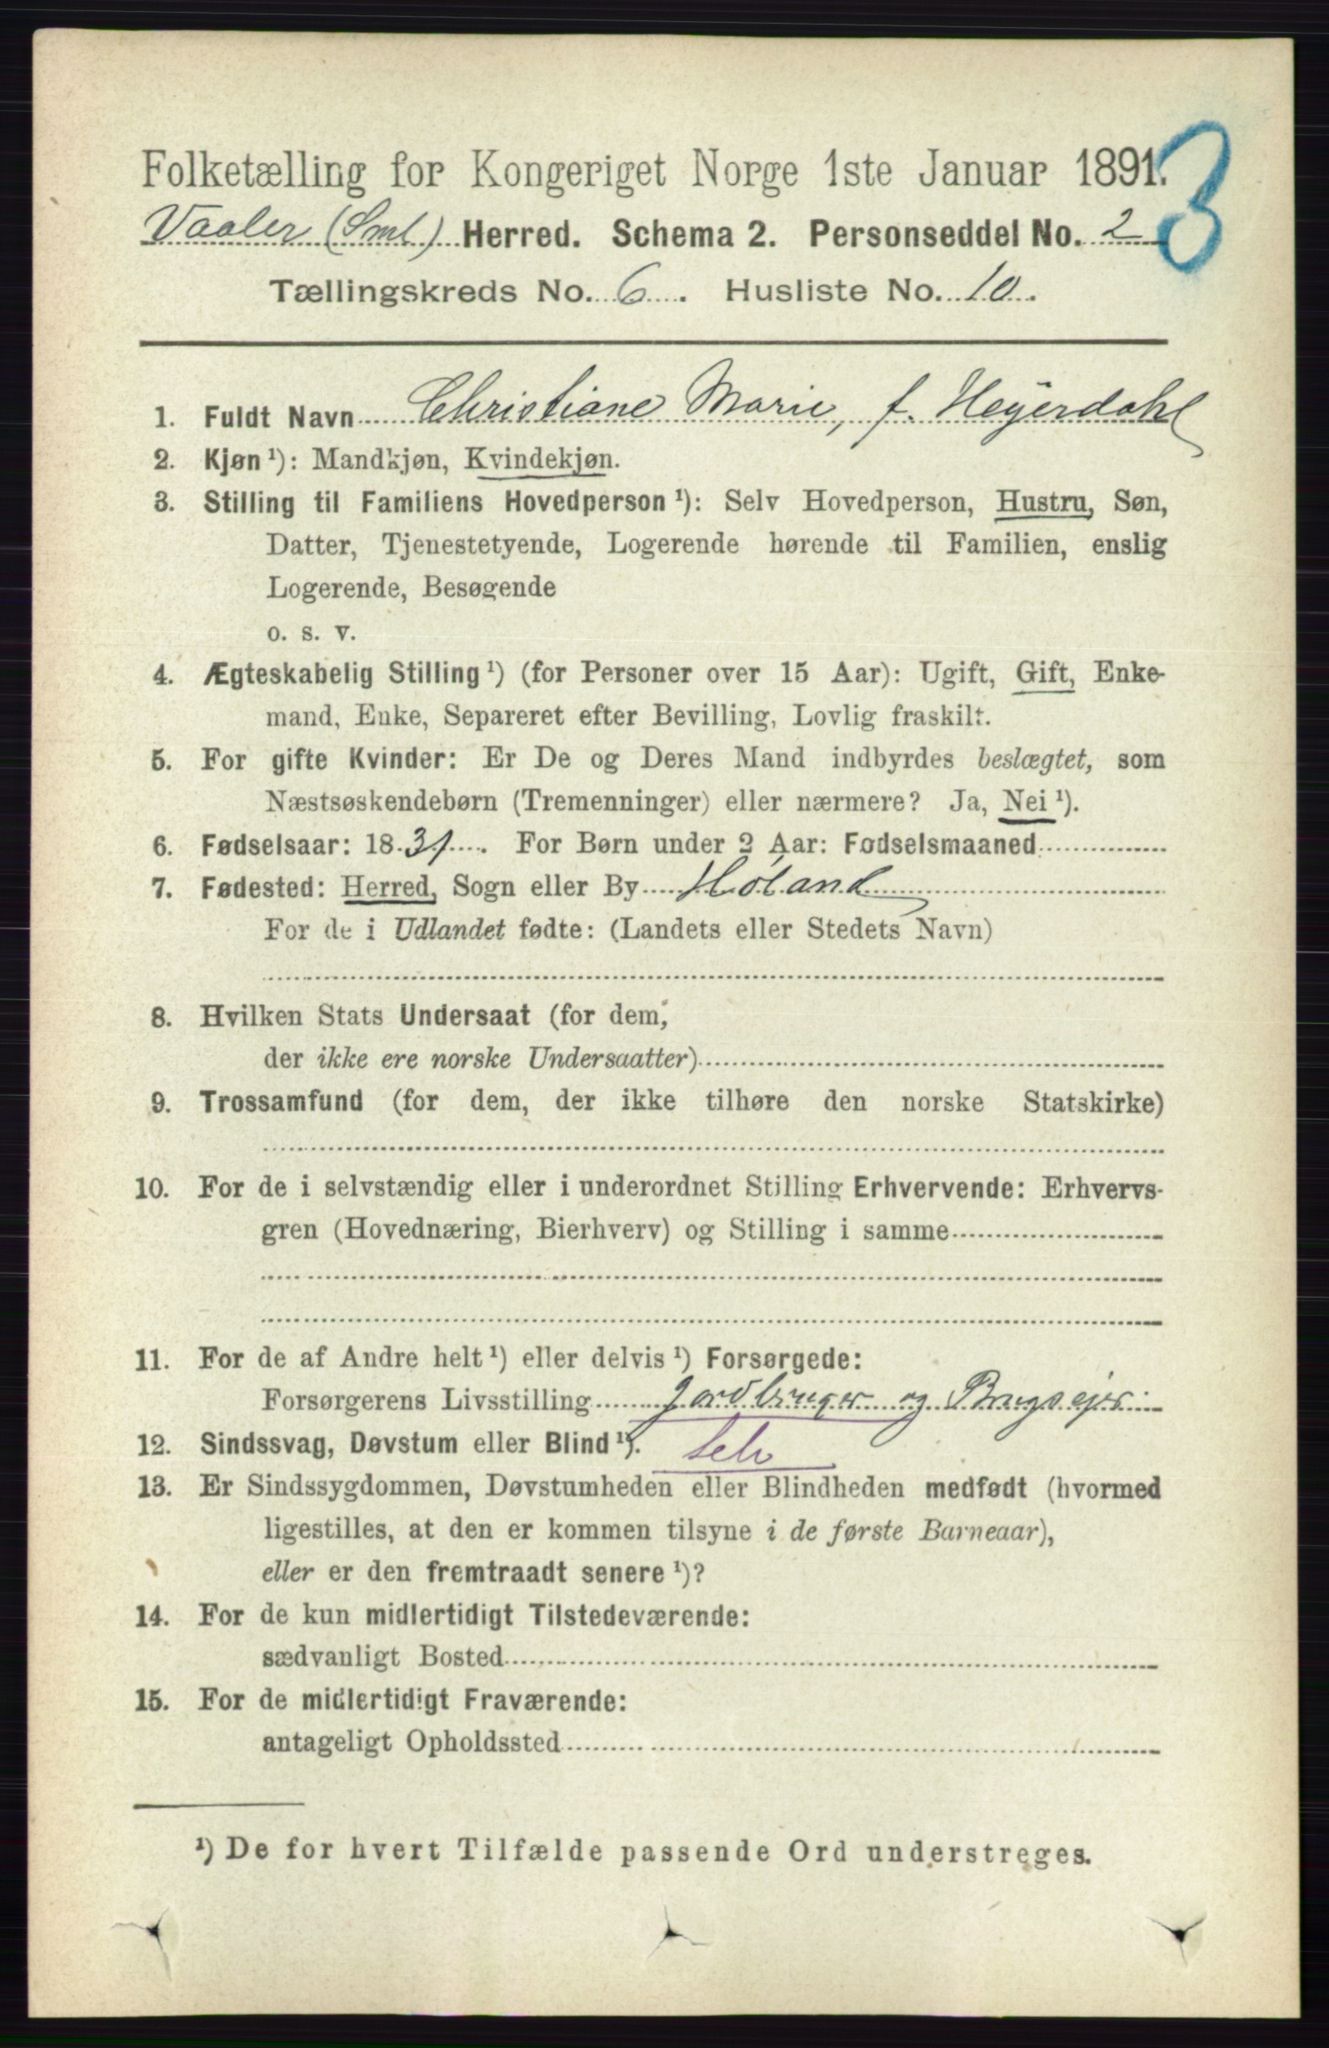 Folketælling for Kongeriget Norge 1ste Januar 1891.
3
Vaaler (Sml) Herred. Schema 2. Personseddel No. 2
Tællingskreds No. 6. Husliste No. 10.
1. Fuldt Navn Christiane Marie, f. Heyerdahl
2. Kjøn ¹): Mandkjøn, Kvindekjøn.
3. Stilling til Familiens Hovedperson ¹): Selv Hovedperson, Hustru, Søn,
Datter, Tjenestetyende, Logerende hørende til Familien, enslig
Logerende, Besøgende
o. s. v.
4. Ægteskabelig Stilling ¹) (for Personer over 15 Aar): Ugift, Gift, Enke-
mand, Enke, Separeret efter Bevilling, Lovlig fraskilt.
5. For gifte Kvinder: Er De og Deres Mand indbyrdes beslægtet, som
Næstsøskendebørn (Tremenninger) eller nærmere? Ja, Nei ¹).
6. Fødselsaar: 1831. For Børn under 2 Aar: Fødselsmaaned
7. Fødested: Herred, Sogn eller By Høland
For de i Udlandet fødte: (Landets eller Stedets Navn)
8. Hvilken Stats Undersaat (for dem,
der ikke ere norske Undersaatter)
9. Trossamfund (for dem, der ikke tilhøre den norske Statskirke)
10. For de i selvstændig eller i underordnet Stilling Erhvervende: Erhvervs-
gren (Hovednæring, Bierhverv) og Stilling i samme
11. For de af Andre helt ¹) eller delvis ¹) Forsørgede:
Forsørgerens Livsstilling Jordbruger og Brugsejer
12. Sindssvag, Døvstum eller Blind ¹). selv
13. Er Sindssygdommen, Døvstumheden eller Blindheden medfødt (hvormed
ligestilles, at den er kommen tilsyne i de første Barneaar),
eller er den fremtraadt senere ¹)?
14. For de kun midlertidigt Tilstedeværende:
sædvanligt Bosted
15. For de midlertidigt Fraværende:
antageligt Opholdssted
¹) De for hvert Tilfælde passende Ord understreges.